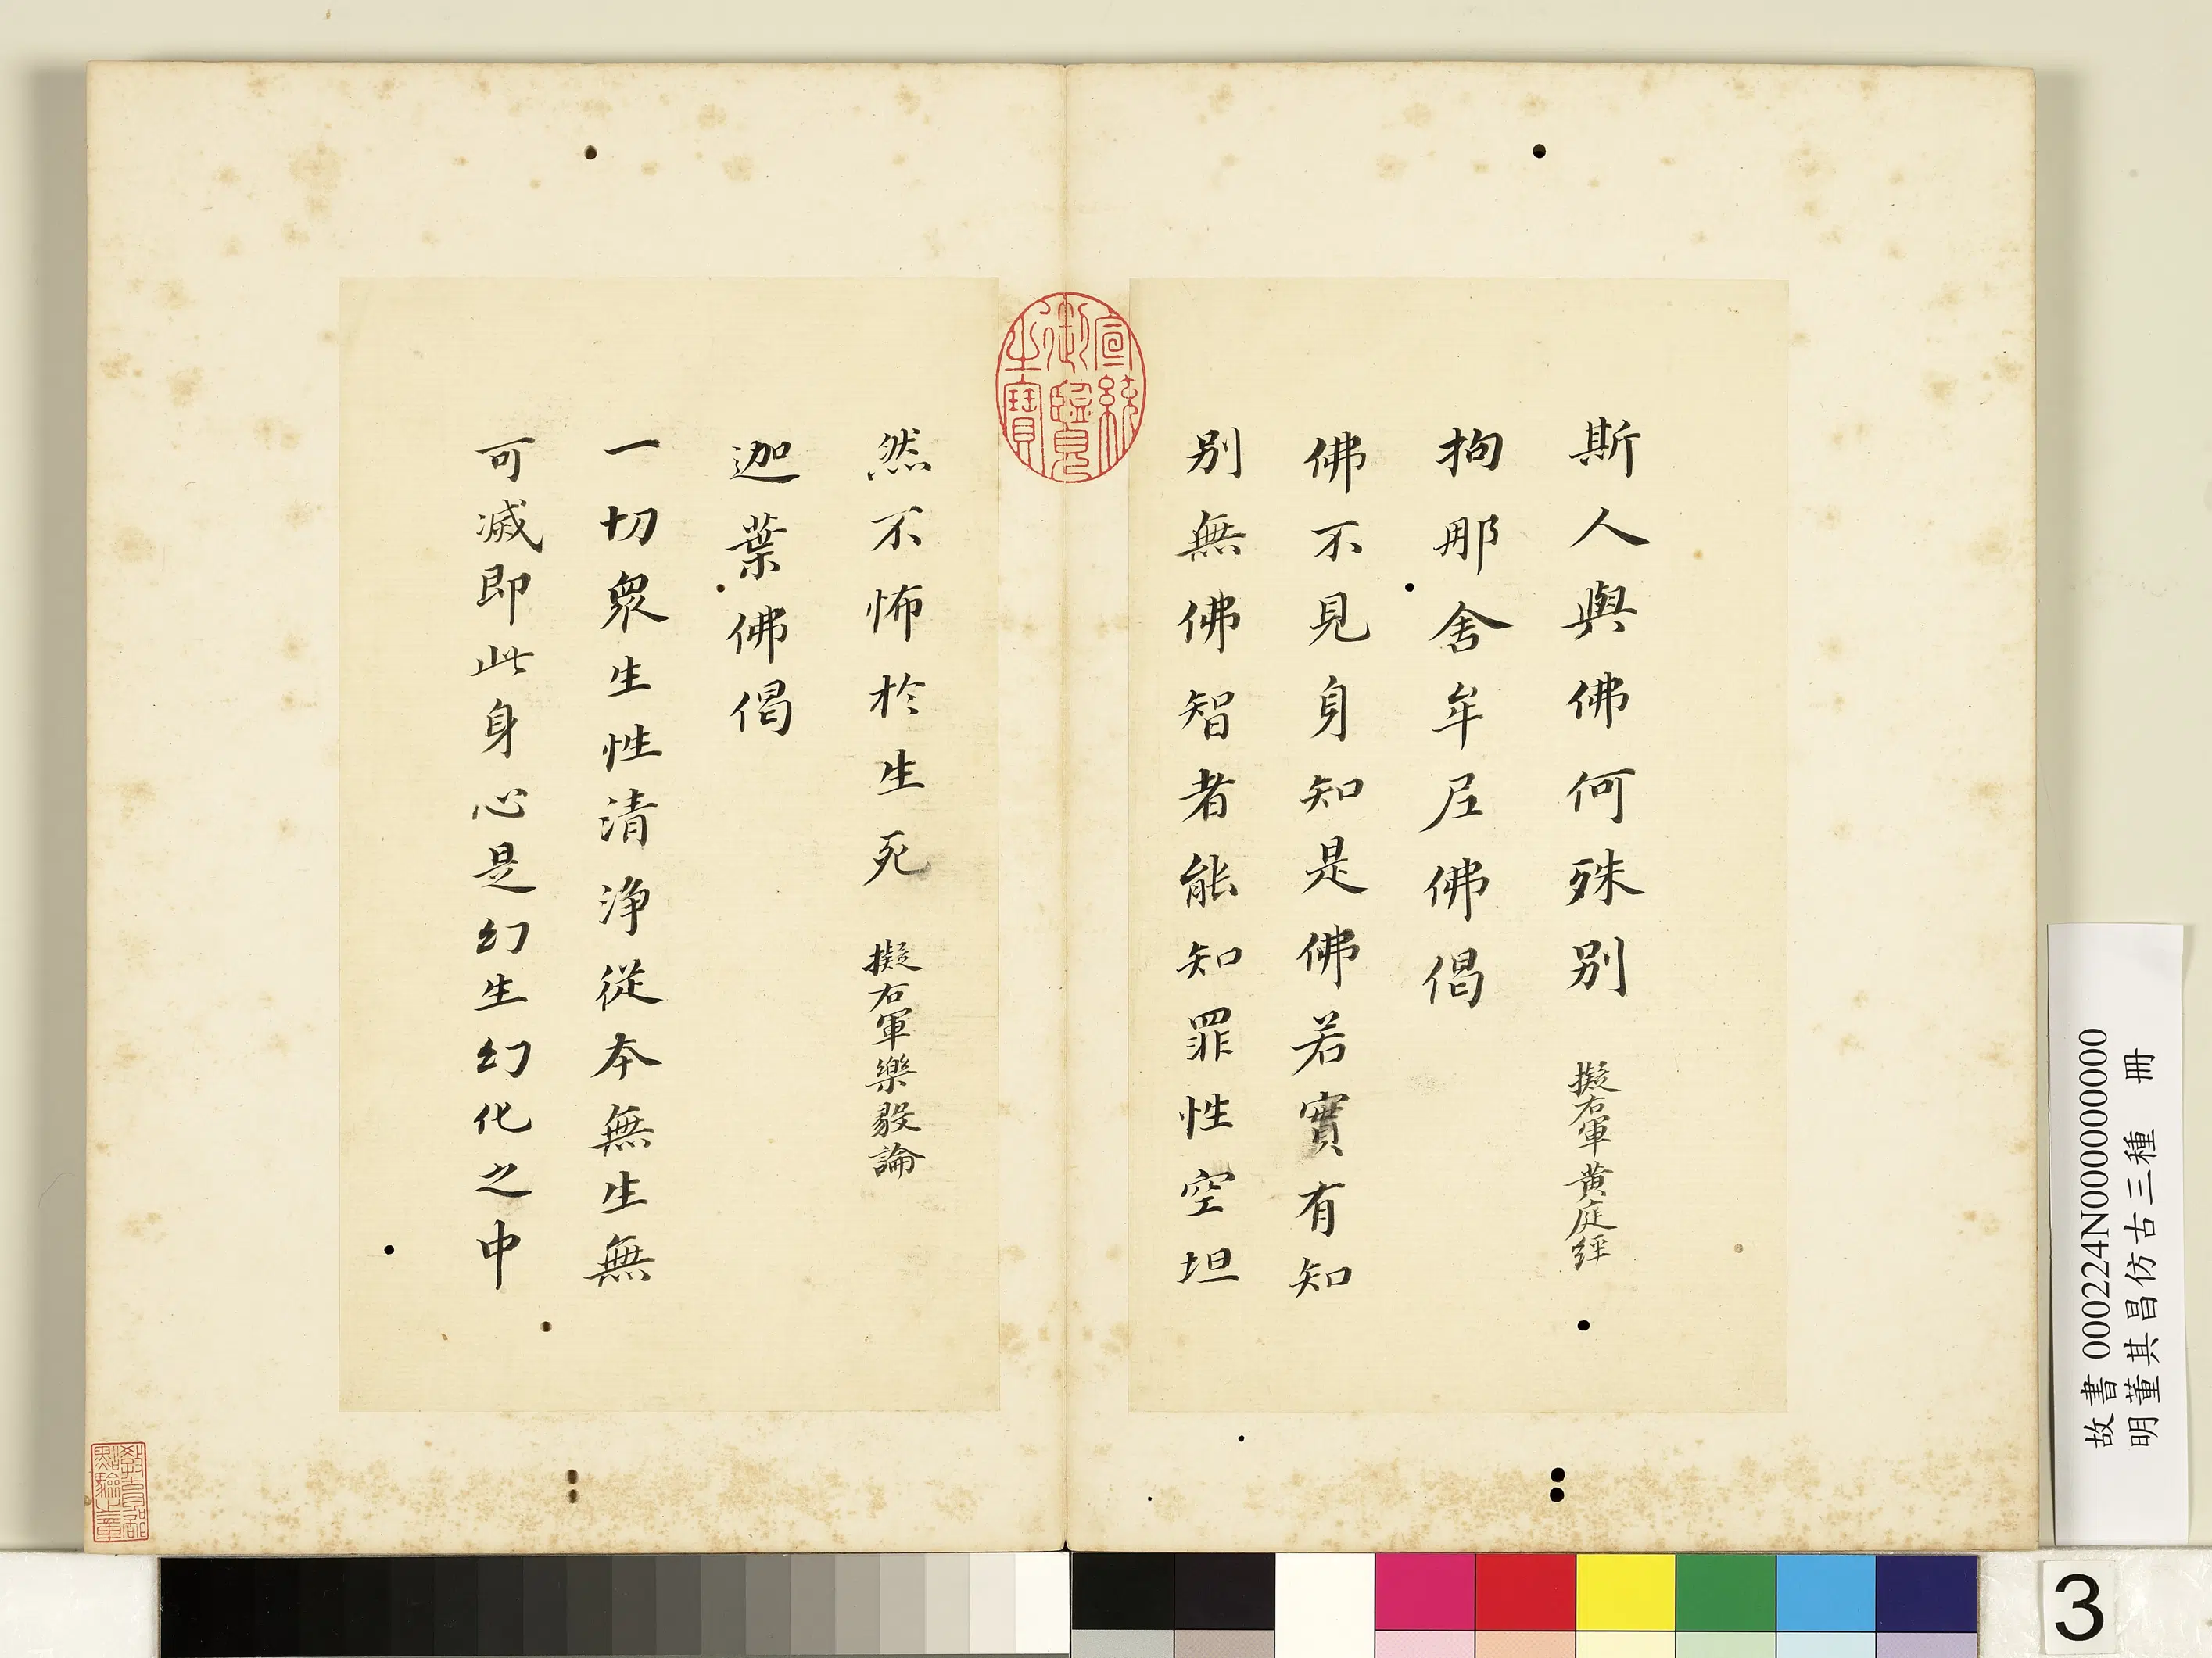 斯人與佛何殊別 擬右軍黃庭經
拘那舍牟尼佛偈
佛不見身知是佛若實有知
別無佛智者能知罪性空坦
然不怖於生死 擬右軍樂毅論
迦葉佛偈
一切衆生性清淨從本無生無
可滅即此身心是幻生幻化之中
宣統御覽之寶
教育部點驗之章
故書 000224N000000000
明董其昌仿古三種 冊
3